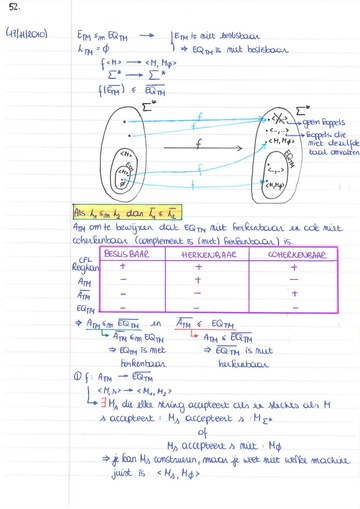 52.
(17/11/2010)
E_TM ≤m EQ_TM → E_TM is niet beslisbaar
L_TM = ∅ ⇒ EQ_TM is niet beslisbaar
f<M> → <M, M∅>
Σ* → Σ*
f(E_TM) ≤ EQ_TM
Σ* Σ*
f
geen koppels
<..., ...> koppels die
<M, M∅> niet dezelfde
taal omvatten
<M> f EQ_TM
E_TM
f <..., ...>
∅ f <M∅, M∅>
Als L₁ ≤m L₂ dan L̅₁ ≤ L̅₂
A_TM om te bewijzen dat EQ_TM niet herkenbaar en ook niet
coherkenbaar (complement is (niet) herkenbaar) is.
BESLISBAAR HERKENBAAR COHERKENBAAR
CFL
Regulian + + +
A_TM - + -
A̅_TM - - +
EQ_TM - - -
⇒ A_TM ≤m E̅Q̅_TM en A̅_TM ≤ EQ_TM
A̅_TM ≤m EQ_TM A_TM ≤ E̅Q̅_TM
⇒ EQ_TM is niet ⇒ E̅Q̅_TM is niet
herkenbaar herkenbaar
① f: A_TM → E̅Q̅_TM
<M, s> → <M₁, M₂>
∃ Ms die elke string accepteert als en slechts als M
s accepteert: Ms accepteert s: M_Σ*
of
Ms accepteert s niet: M∅
⇒ je kan Ms construeren, maar je weet niet welke machine
juist is: <Ms, M∅>